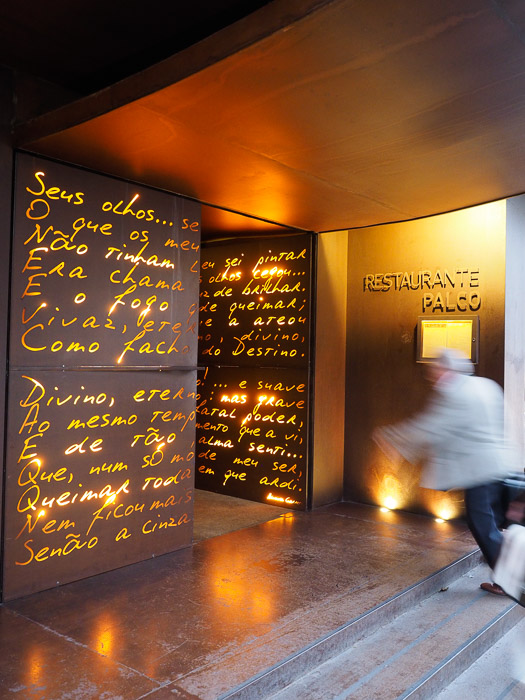 Seus olhos... se
O que os meu
Não tinham
Era chama
E o fogo
Vivaz, eter
Como fach
Divino, etern
Ao mesmo temp
E de tão
Que, num só mo
Queimar toda
Nem ficou mais
Senão a cinza
eu sei pintar
olhos cegou...
uz de brilhar.
de queimar;
e a ateou
no, divino,
do Destino.
! ... e suave
: mas grave
fatal poder,
mento que a vi,
alma senti...
de meu ser,
em que ardi.
RESTAURANTE
PALCO